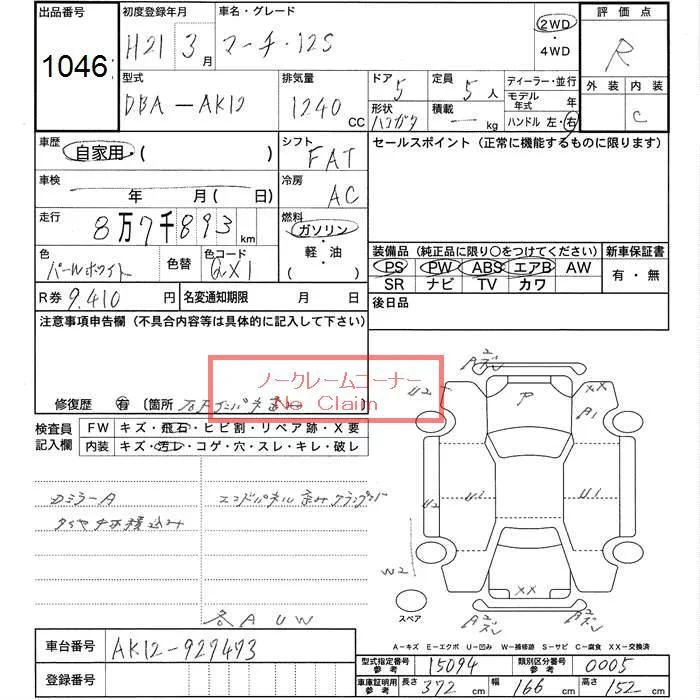 出品番号 初度登録年月 車名・グレード 評価点
1046 H21 3月 マーチ・12S 2WD・4WD R
型式 排気量 ドア 定員 ディーラー・並行 外装 内装
DBA-AK12 1240 CC 5 5人 モデル年式 年 C
形状 ハッチバック 積載 ― kg ハンドル 左・右
車歴 自家用・( ) シフト FAT セールスポイント (正常に機能するものに限ります)
車検 年 月( 日) 冷房 AC
走行 8万7千893km 燃料 ガソリン・軽・油 ( )
色 パールホワイト 色替 色コード QX1
装備品 (純正品に限り○をつけてください) 新車保証書
PS PW ABS エアB AW 有・無
SR ナビ TV カワ
R券 9.410円 名変通知期限 月 日 後日品
注意事項申告欄 (不具合内容等は具体的に記入して下さい)
ノークレームコーナー
No Claim
修復歴 有 〔箇所
検査員記入欄 FW キズ・飛石・ヒビ割・リペア跡・X要
内装 キズ・汚レ・コゲ・穴・スレ・キレ・破レ
DミラーA エンドパネル歪み
タイヤ4本積込み
各A U W
A2 U2 XX A1 P
U2 U2 U1 U2
W2 XX
スペア
A-キズ E-エクボ U-凹み W-補修跡 S-サビ C-腐食 XX-交換済
車台番号 AK12-929473
型式指定番号参考 15094 類別区分番号参考 0005
登録番号 車庫証明用参考 長さ 372cm 幅 166cm 高さ 152cm